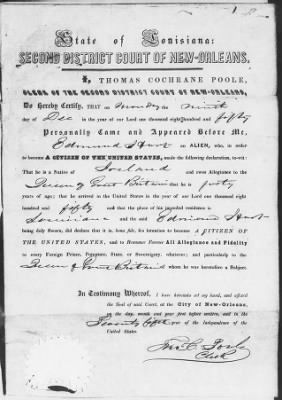 State of Louisiana:
SECOND DISTRICT COURT OF NEW-ORLEANS.
I, THOMAS COCHRANE POOLE,
CLERK OF THE SECOND DISTRICT COURT OF NEW-ORLEANS,
Do Hereby Certify, THAT on Monday the ninth
day of Dec in the year of our Lord one thousand eight hundred and fifty
Personally Came and Appeared Before Me,
Edmund an ALIEN, who, in
order to become A CITIZEN OF THE UNITED STATES, made the following declaration, to-wit:
That he is a Native of Ireland and owes Allegiance to the
Queen of Great Britain that he is forty
years of age; that he arrived in the United States in the year of our Lord one thousand eight
hundred and fifty and that the place of his intended residence is
Louisiana and the said
being duly Sworn, did declare that it is, bona fide, his intention to become A CITIZEN OF
THE UNITED STATES, and to Renounce Forever All Allegiance and Fidelity
to every Foreign Prince, Potentate, State, or Sovereignty, whatever; and particularly to the
Queen of Great Britain whom he was heretofore a Subject.
In Testimony Whereof, I have hereunto set my hand, and affixed
the Seal of said Court, at the City of New-Orleans,
on the day, month and year first before written, and in the
Seventy fifth year of the Independence of the
United States.
Clerk